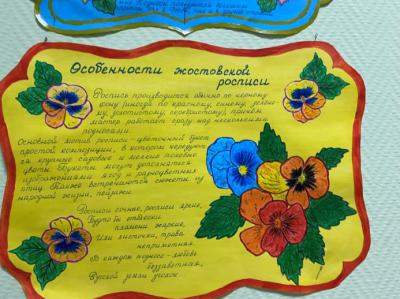 Особенности жостовской
росписи
Роспись производится обычно по черному
фону (иногда по красному, синему, зелено-
му, золотистому, перламутровому), причём
мастер работает сразу над несколькими
подносами.
Основной мотив росписи - цветочный букет
простой композиции, в котором чередуют-
ся крупные садовые и мелкие полевые
цветы. Букеты могут дополняться
изображениями ягод и разноцветных
птиц. Также встречаются сюжеты из
народной жизни, пейзажи.
Росписи сочные, росписи яркие,
Будто бы отблески
пламени жаркие,
Или листочки, трава
неприметная.
В каждом подносе - любовь
беззаветная,
Русской земли